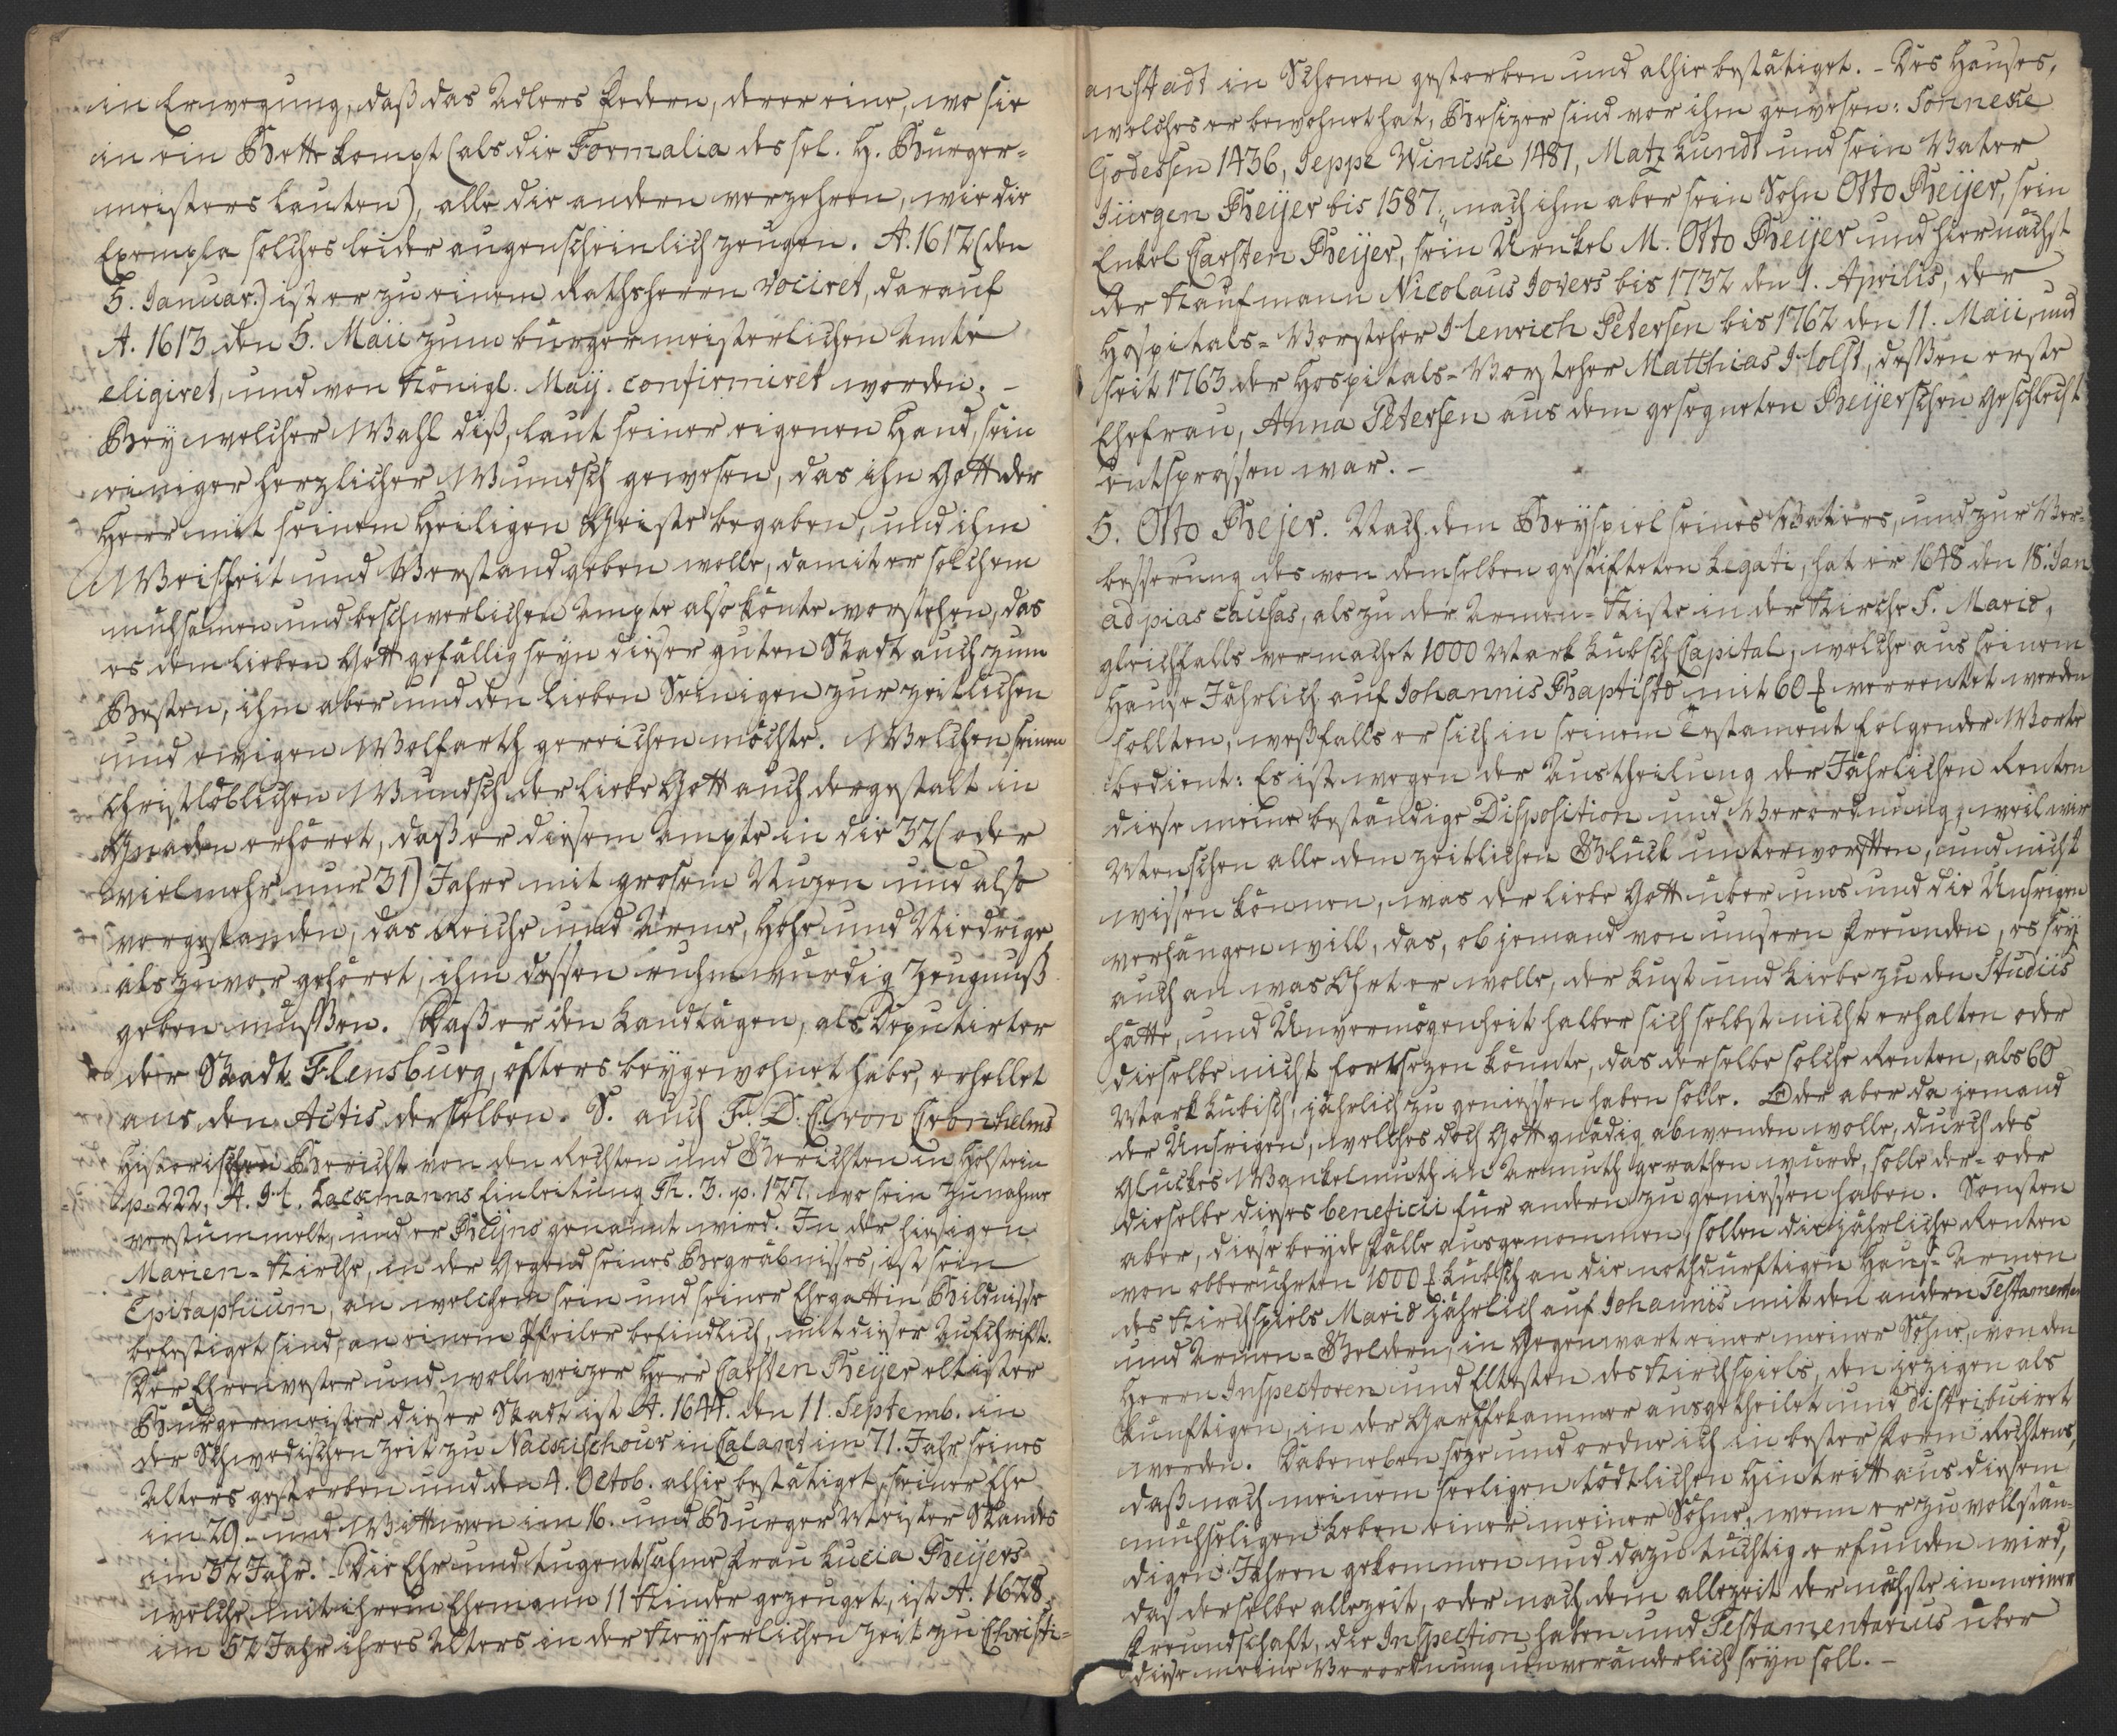 in Erwegung, daß das Adlers Federn, derer eine, wo sie
in ein Bette kompt (als die Formalia des sel. H. Bürger-
meisters lauten), alle die andern verzehren, wie die
Exempla solches leider augenscheinlich zeugen. A. 1612 (den
5. Januar.) ist er zu einem Rathsherrn vociret, darauf
A. 1613 den 5. Maii zum bürgermeisterlichen Amte
eligiret, und von Königl. Maij. confirmiret worden. -
Bey welcher Wahl diß, laut seiner eigenen Hand, sein
einiger herzlicher Wundsch gewesen, das ihn Gott der
Herr mit seinem Heiligen Geiste begaben, und ihm
Weisheit und Verstand geben wolle, damit er solchem
mühsamen und beschwerlichen Ampte also könte vorstehen, das
es dem lieben Gott gefällig seyn dieser guten Stadt auch zum
Besten, ihm aber und den lieben Seinigen zur zeitlichen
und ewigen Wolfarth gereichen möchte. Welchen seinen
Christlöblichen Wundsch der liebe Gott auch dergestalt in
Gnaden erhöret, daß er diesem Ampte in die 32 (oder
vielmehr nur 31) Jahre mit grosem Nuzen und also
vorgestanden, das Reiche und Arme, Hohe und Niedrige
als zuvor gehöret, ihm dessen ruhmwürdig Zeugnuß
geben müßen. Daß er den Landtägen, als Deputirter
der Stadt Flensburg, öfters beygewohnet habe, erhellet
aus den Actis derselben. S. auch F. D. C. von Cronhelms
Historischen Bericht von den Rechten und Gerichten in Holstein
p. 222, A. H. Lackmanns Einleitung Th. 3. p. 127. wo sein Zunahme
verstümmelt, und er Beijns genannt wird. In der hiesigen
Marien-Kirche, in der Gegend seines Begräbnisses, ist sein
Epitaphium, an welchem sein und seiner Ehegattin Bildnisse
befestiget sind, an einem Pfeiler befindlich, mit dieser Aufschrift.
Der Ehrenvester und wollweizer Herr Carsten Beyer eltister
Bürgermeister dieser Stadt ist A. 1644. den 11. Septemb. in
der Schwedischen Zeit zu Nackschour in Calant im 71. Jahr seines
Alters gestorben und den 4. Octob. alhie bestätiget, seiner Ehe
im 29. und Wittwen im 16. und Bürger Meister Standes
im 32 Jahr. - Die Ehr und tugentsahme Frau Lucia Beijers
welche mit ihrem Ehemann 11 Kinder gezeuget, ist A. 1628
im 52 Jahr ihres Alters in der Keyserlichen Zeit zu Christi-
anstadt in Schonen gestorben und alhie bestätiget. - Des Hauses,
welches er bewohnet hat, Besizer sind vor ihm gewesen: Sonneke
Godessen 1436, Jeppe Wincke 1481, Matz Lundt und sein Vater
Jürgen Beijer bis 1587, nach ihm aber sein Sohn Otto Beijer, sein
Enkel Carsten Beijer, sein Urenkel M. Otto Beijer und hiernächst
der Kaufmann Nicolaus Jovers bis 1732 den 1. Aprilis, der
Hospitals-Vorsteher Henrich Petersen bis 1762 den 11. Maii, und
seit 1763 der Hospitals-Vorsteher Matthias Holst, deßen erste
Ehefrau, Anna Petersen aus dem gesegneten Beijerschen Geschlecht
entsprossen war. -
5. Otto Bejer. Nach dem Beyspiel seines Vaters, und zur Ver-
besserung des von demselben gestifteten Legati, hat er 1648 den 18. Jan
ad pias causas, als zu der Armen-Kiste in der Kirche S. Mariæ,
gleichfalls vermachet 1000 Mark Lübsch Capital, welche aus seinem
Hause Jährlich auf Johannis Baptistæ mit 60 ₰ verrentet werden
sollten, weßfalls er sich in seinem Testament folgender Worte
bedient: Es ist wegen der Austheilung der Jährlichen Renten
diese meine beständige Disposition und Verordnung, weil wir
Menschen alle dem zeitlichen Glück unterworffen, und nicht
wissen können, was der liebe Gott über uns und die Unsrigen
verhängen will, das, ob jemand von unsern Freunden, es sey
auch an was Ohrt er wolle, der Lust und Liebe zu den Studiis
hätte, und Unvermögenheit halber sich selbst nicht erhalten oder
dieselbe nicht fortsezen könnte, das derselbe solche Renten, als 60
Mark Lübisch, jährlich zu geniessen haben solle. Oder aber da jemand
der Unsrigen, welches doch Gott gnädig abwenden wolle, durch des
Glückes Wankelmuth in Armuth gerathen würde, solle der- oder
dieselbe dieses beneficii für andern zu geniessen haben. Sonsten
aber, diese beyde Fälle ausgenommen, sollen die jährliche Renten
von obberührten 1000 ₰ Lübsch an die nothdürftigen Haus-Armen
des Kirchspiels Mariæ jährlich auf Johannis mit den andern Testamenten
und Armen-Geldern, in Gegenwart einer meiner Söhne, von den
Herren Inspectoren und Eltesten des Kirchspiels, den jezigen als
künftigen, in der Garfekammer ausgetheilet und distribuiret
werden. Daneben seze und ordne ich in bester Form Rechtens,
daß nach meinem seeligen tödtlichen Hintritt aus diesem
mühseligen Leben einer meiner Söhne, wenn er zu vollstän-
digen Jahren gekommen und dazu tüchtig erfunden wird,
das derselbe allezeit, oder nach dem allezeit der nächste in meiner
Freundschaft, die Inspection haben und Testamentarius über
diese meine Verordnung unveränderlich seyn soll. -